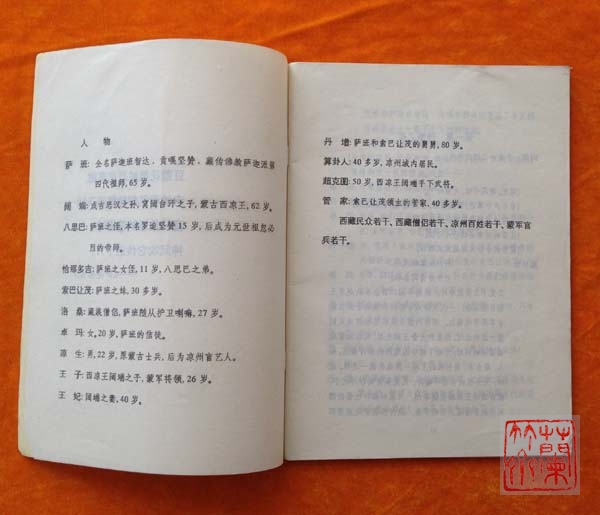 人物
萨 班:全名萨迦班智达,贡嘎坚赞,藏传佛教萨迦派第
四代祖师,65岁。
阔 端:成吉思汗之孙,窝阔台汗之子,蒙古西凉王,62岁。
八思巴:萨班之侄,本名罗追坚赞15岁,后成为元世祖忽必
烈的帝师。
恰那多吉:萨班之女侄,11岁,八思巴之弟。
索巴让茂:萨班之妹,30多岁。
洛 桑:藏族僧侣,萨班随从护卫喇嘛,27岁。
卓 玛:女。20岁,萨班的信徒。
原 生:男,22岁,原蒙古士兵,后为凉州盲艺人。
王 子:西凉王阔端之子,蒙军将领,26岁。
王 妃:阔端之妻,40岁。
丹 增:萨班和索巴让茂的舅舅,80岁。
算卦人:40多岁,凉州城内居民。
超克图:50岁,西凉王阔端手下武将。
管 家:索巴让茂领主的管家,40多岁。
西藏民众若干、西藏僧侣若干、凉州百姓若干、蒙军官
兵若干。